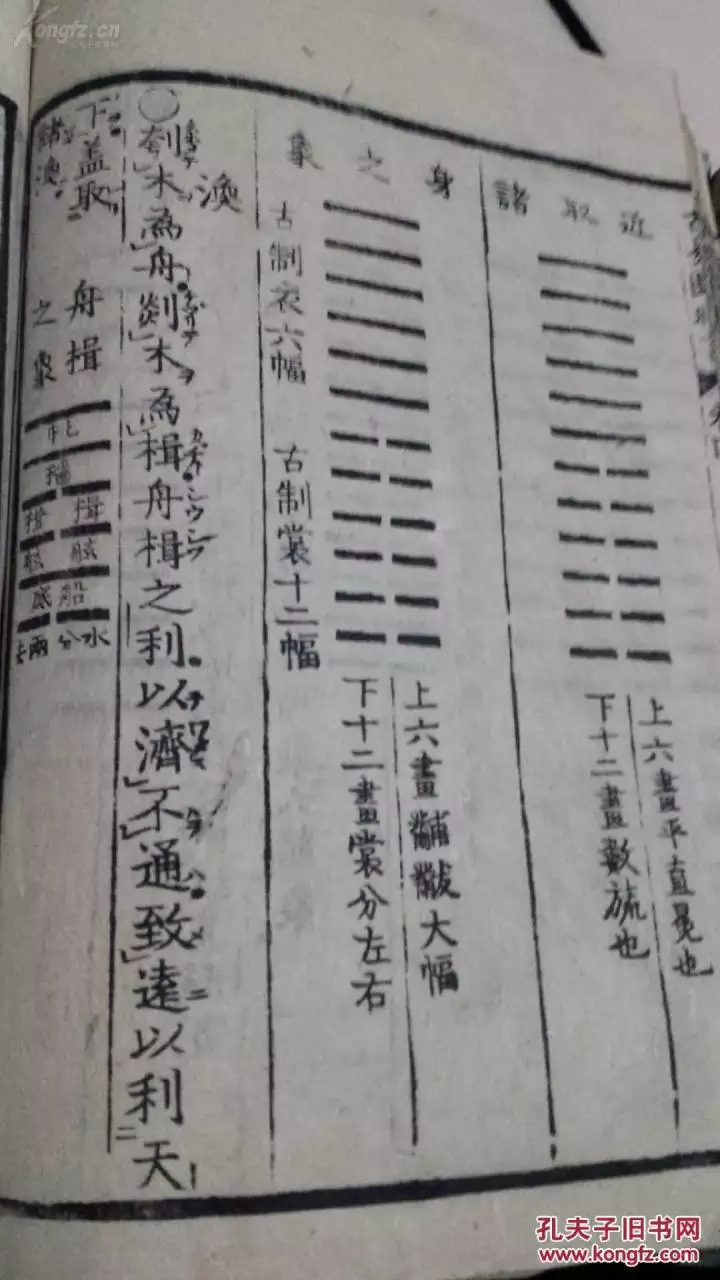 近取諸
上六畫平直冕也
下十二畫數旒也
身之象
上六畫黼黻大幅
下十二畫裳分左右
古制衮六幅
古制裳十二幅
渙
○刳木爲舟剡木爲楫舟楫之利以濟不通致遠以利天
下蓋取
諸渙
舟楫
之象
楫楫
舷舷
船底
水分兩去
Kongfz.cn
孔夫子旧书网
www.kongfz.com